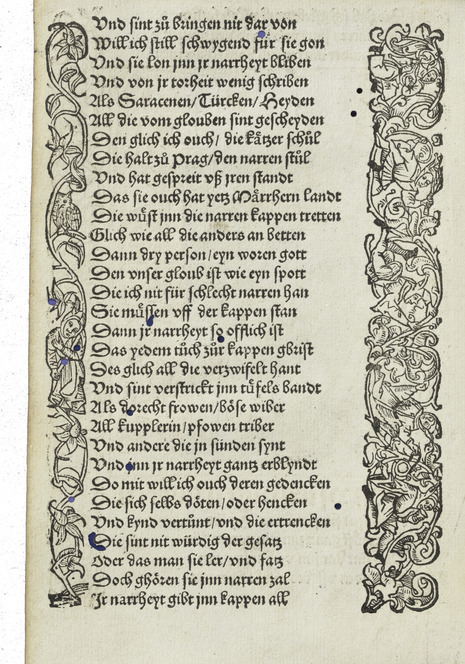 Vnd sint zů bringen nit dar von
Will ich still schwygend für sie gon
Vnd sie lon jnn jr narrheyt bliben
Vnd von jr torheit wenig schriben
Als Saracenen/Türcken/Heyden
All die vom glouben sint gescheyden
Den glich ich ouch/die kätzer schůl
Die halt zů Prag/den narren stůl
Vnd hat gespreit vß jren standt
Das sie ouch hat yetz Märrhern landt
Die wůst jnn die narren kappen tretten
Glich wie all die anders an betten
Dann dry person/eyn woren gott
Den vnser gloub ist wie eyn spott
Die ich nit für schlecht narren han
Sie müssen vff der kappen stan
Dann jr narrheyt so offlich ist
Das yedem tůch zůr kappen gbrist
Des glich all die verzwifelt hant
Vnd sint verstrickt jnn tüfels bandt
Als dorecht frowen/böse wiber
All kupplerin/pfowen triber
Vnd andere die jn sünden synt
Vnd jnn jr narrheyt gantz erblyndt
Do mit will ich ouch deren gedencken
Die sich selbs döten/oder hencken
Vnd kynd vertůnt/vnd die ertrencken
Die sint nit würdig der gesatz
Oder das man sie ler/vnd fatz
Doch ghören sie jnn narren zal
Ir narrheyt gibt jnn kappen all